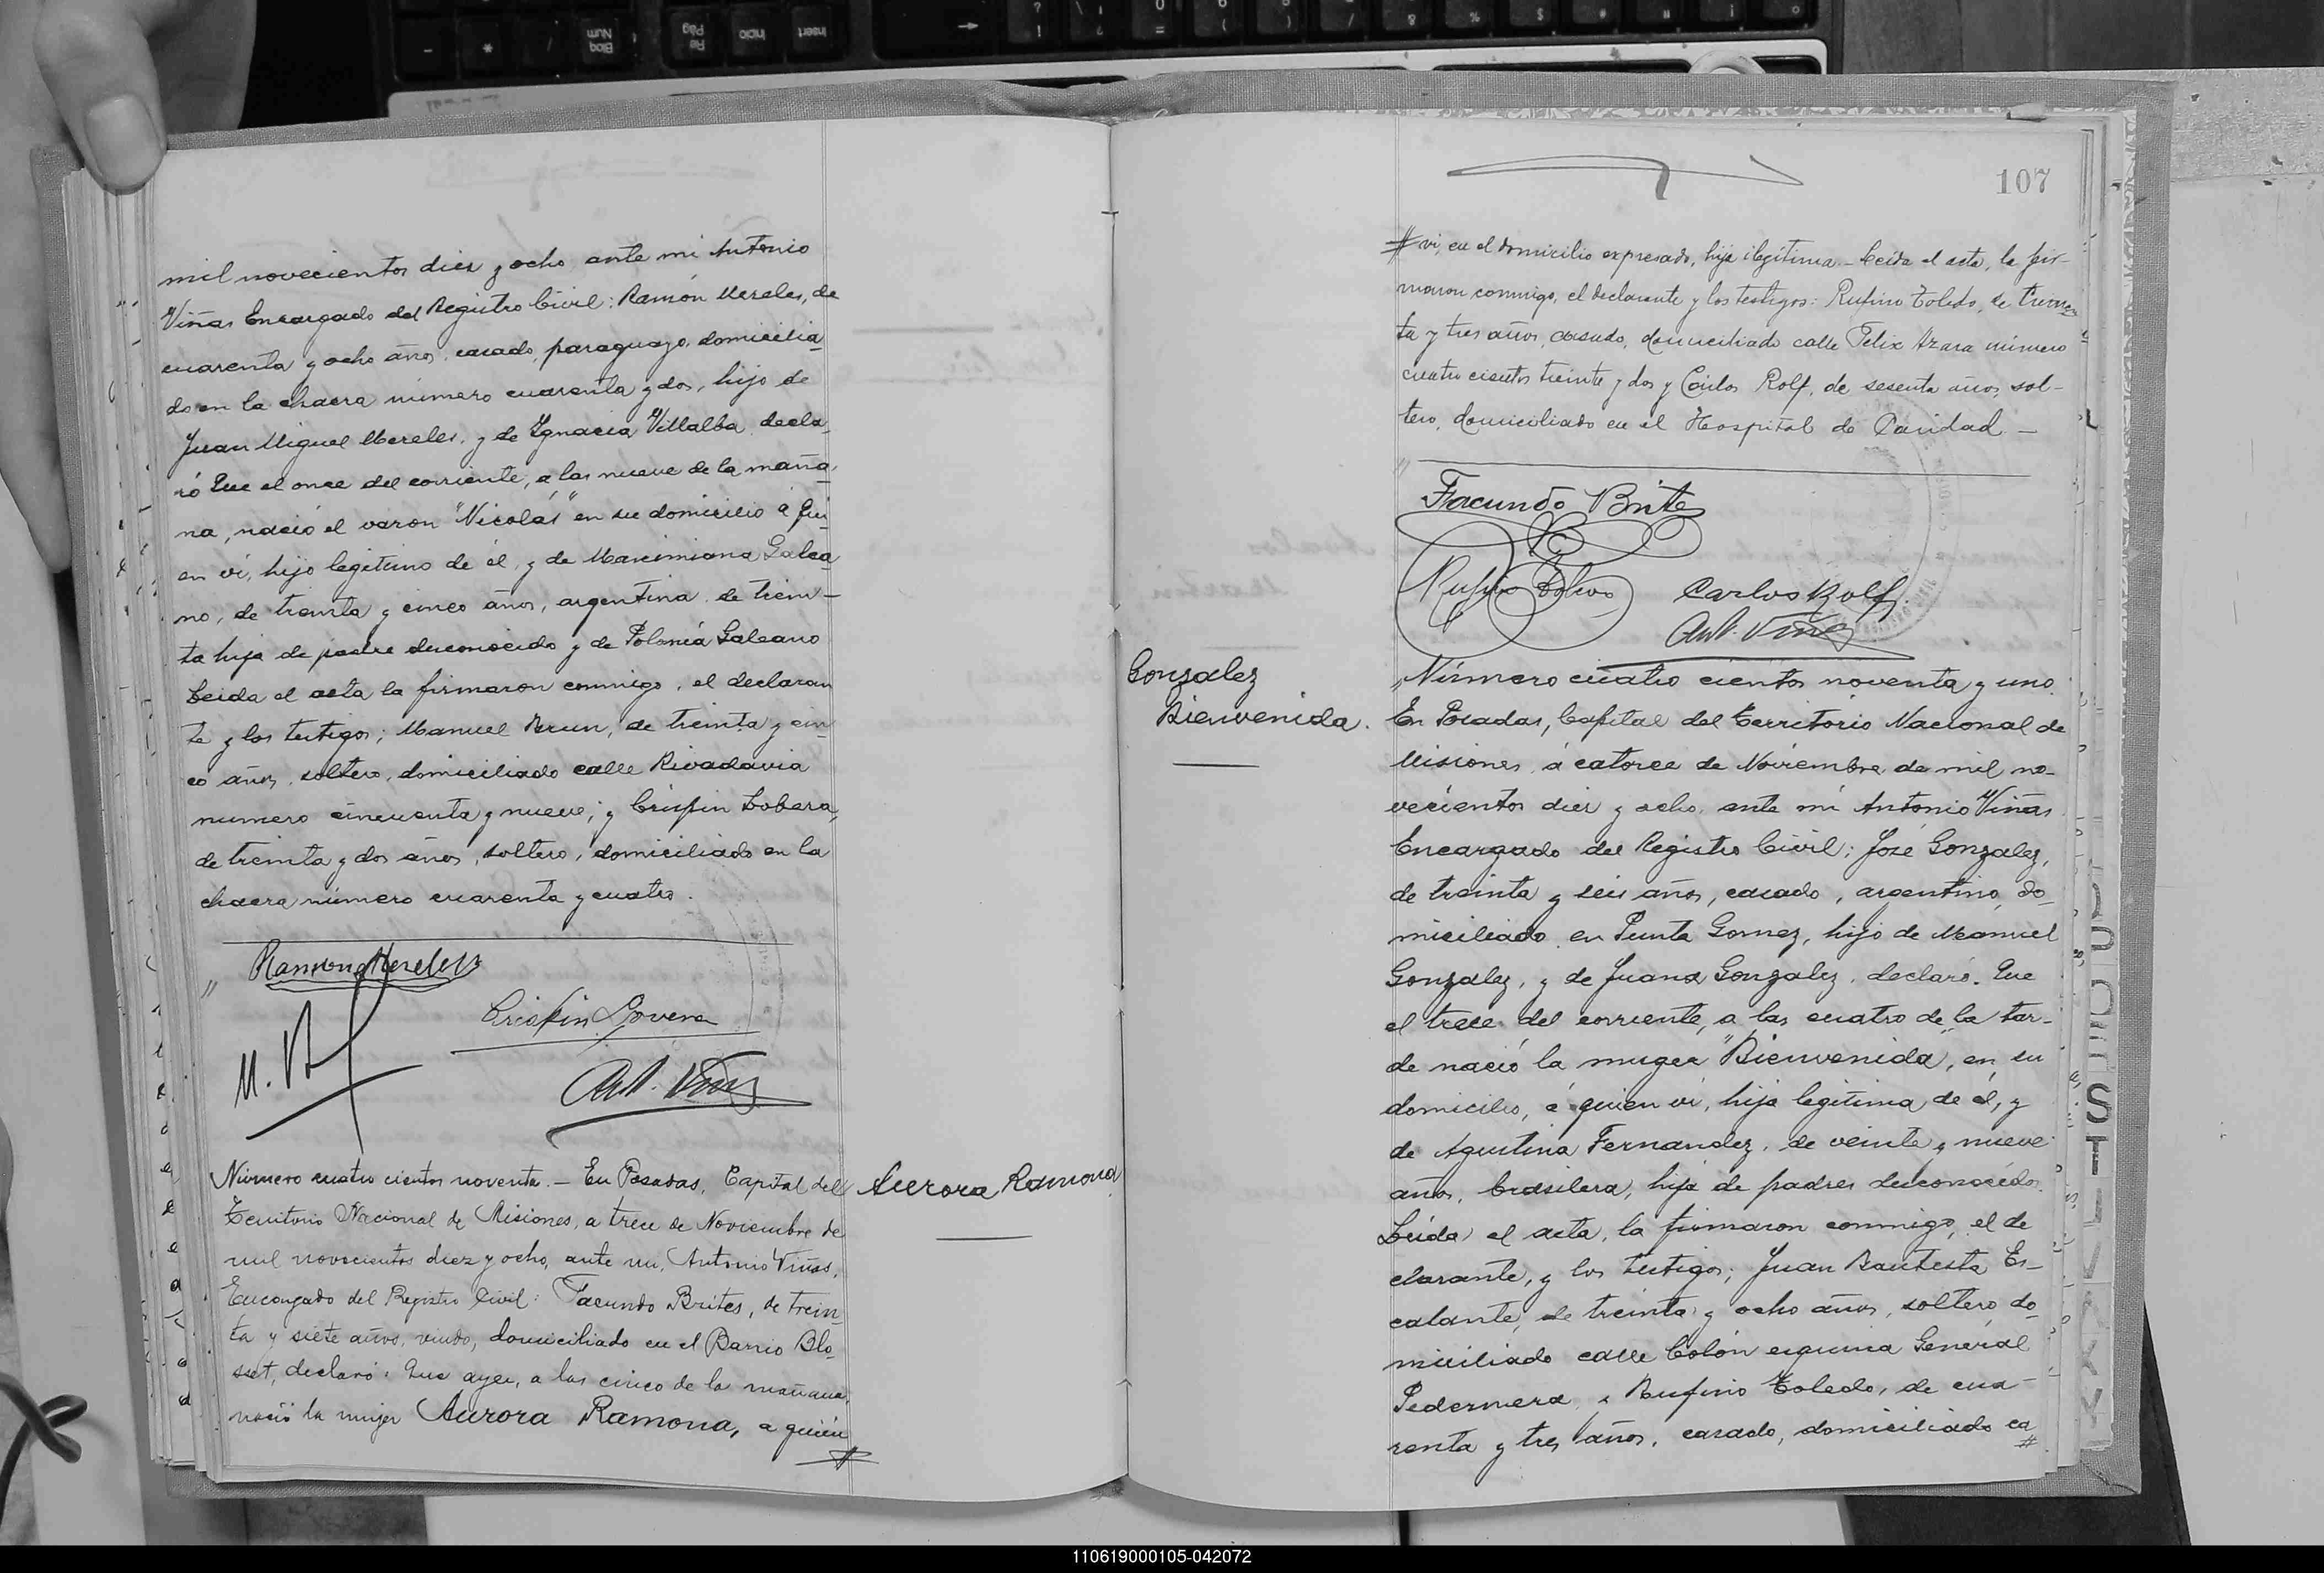 mil novecientos diez y ocho, ante mi Antonio
Viñas Encargado del Registro Civil: Ramón Mereles, de
cuarenta y ocho años, casado, paraguayo, domicilia
do en la chacra número cuarenta y dos, hijo de
Juan Miguel Mereles, y de Ygnacia Villalba decla_
ró Que el once del corriente, a las nueve de la maña_
na, nació el varon "Nicolás" en su domicilio á qui_
en ví, hijo legítimo de él y de Marcimiana Galea
no, de treinta y cinco años, argentina de trein-
ta hija de padre desconocido y de Polonia Galeano
Leida el acta la firmaron conmigo, el declaran
te y los testigos; Manuel Brun, de treinta y cin_
co años, soltero, domiciliado calle Rivadavia
numero cincuenta y nueve; y Crispin Lobera,
de treinta y dos años, soltero, domiciliado en la
chacra número cuarenta y cuatro.
" Ramon Mereles
Crispin Lovera
M. B
Ant. Viñas
Número cuatro cientos noventa. - En Posadas, Capital del
Aurora Ramona
Territorio Nacional de Misiones, a trece de Noviembre de
mil novecientos diez y ocho, ante mi, Antonio Viñas,
Encargado del Registro Civil: Facundo Brites, de trein_
ta y siete años, viudo, domiciliado en el Barrio Blo_
sset, declaró: Que ayer, a las cinco de la mañana,
nació la mujer Aurora Ramona, a quién
#
107
# vi, en el domicilio expresado, hija ilegítima. - Leída el acta, la fir-
maron conmigo, el declarante y los testigos: Rufino Toledo, de trein
ta y tres años, casado, domiciliado calle Felix Azara número
cuatro cientos treinta y dos y Carlos Rolf, de sesenta años, sol-
tero, domiciliado en el Hospital de Caridad. -
"
Facundo Brites
Rufino Toledo Carlos Rolf.
Ant. Viñas
Gonzalez
Bienvenida.
"Número cuatro cientos noventa y uno.
En Posadas, Capital del Territorio Nacional de
Misiones, á catorce de Noviembre de mil no-
vecientos diez y ocho, ante mí Antonio Viñas
Encargado del Registro Civil; José Gonzalez,
de treinta y seis años, casado, argentino, do_
miciliado en Punta Gomez, hijo de Manuel
Gonzalez, y de Juana Gonzalez, declaró. Que
el trece del corriente, a las cuatro de la tar-
de nació la muger "Bienvenida", en su
domicilio, á quien ví, hija legítima de él, y
de Agustina Fernandez, de veinte y nueve
años, brasilera, hija de padres desconocidos.
Leída el acta, la firmaron conmigo, el de
clarante, y los testigos; Juan Bautista Es-
calante, de treinta y ocho años, soltero, do_
miciliado calle Colón esquina General
Pedernera, y Rufino Toledo, de cua-
renta y tres años, casado, domiciliado ca
#
110619000105-042072